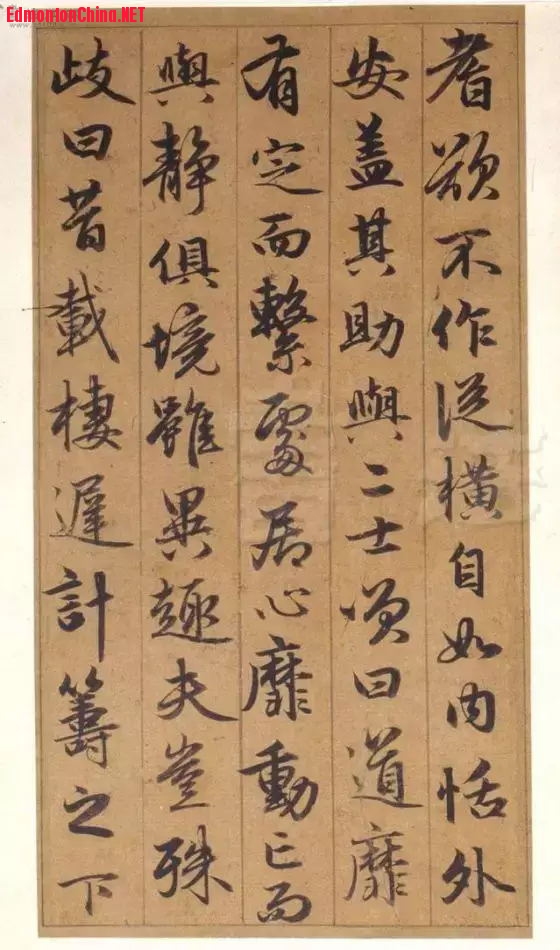 EdmontonChina.NET
耆欲不作従横自如内恬外
安盖其助與二士頌曰道靡
有定而繫處居心靡動亡而
與静俱境雖異趣夫豈殊
歧曰昔載棲遲計籌之下